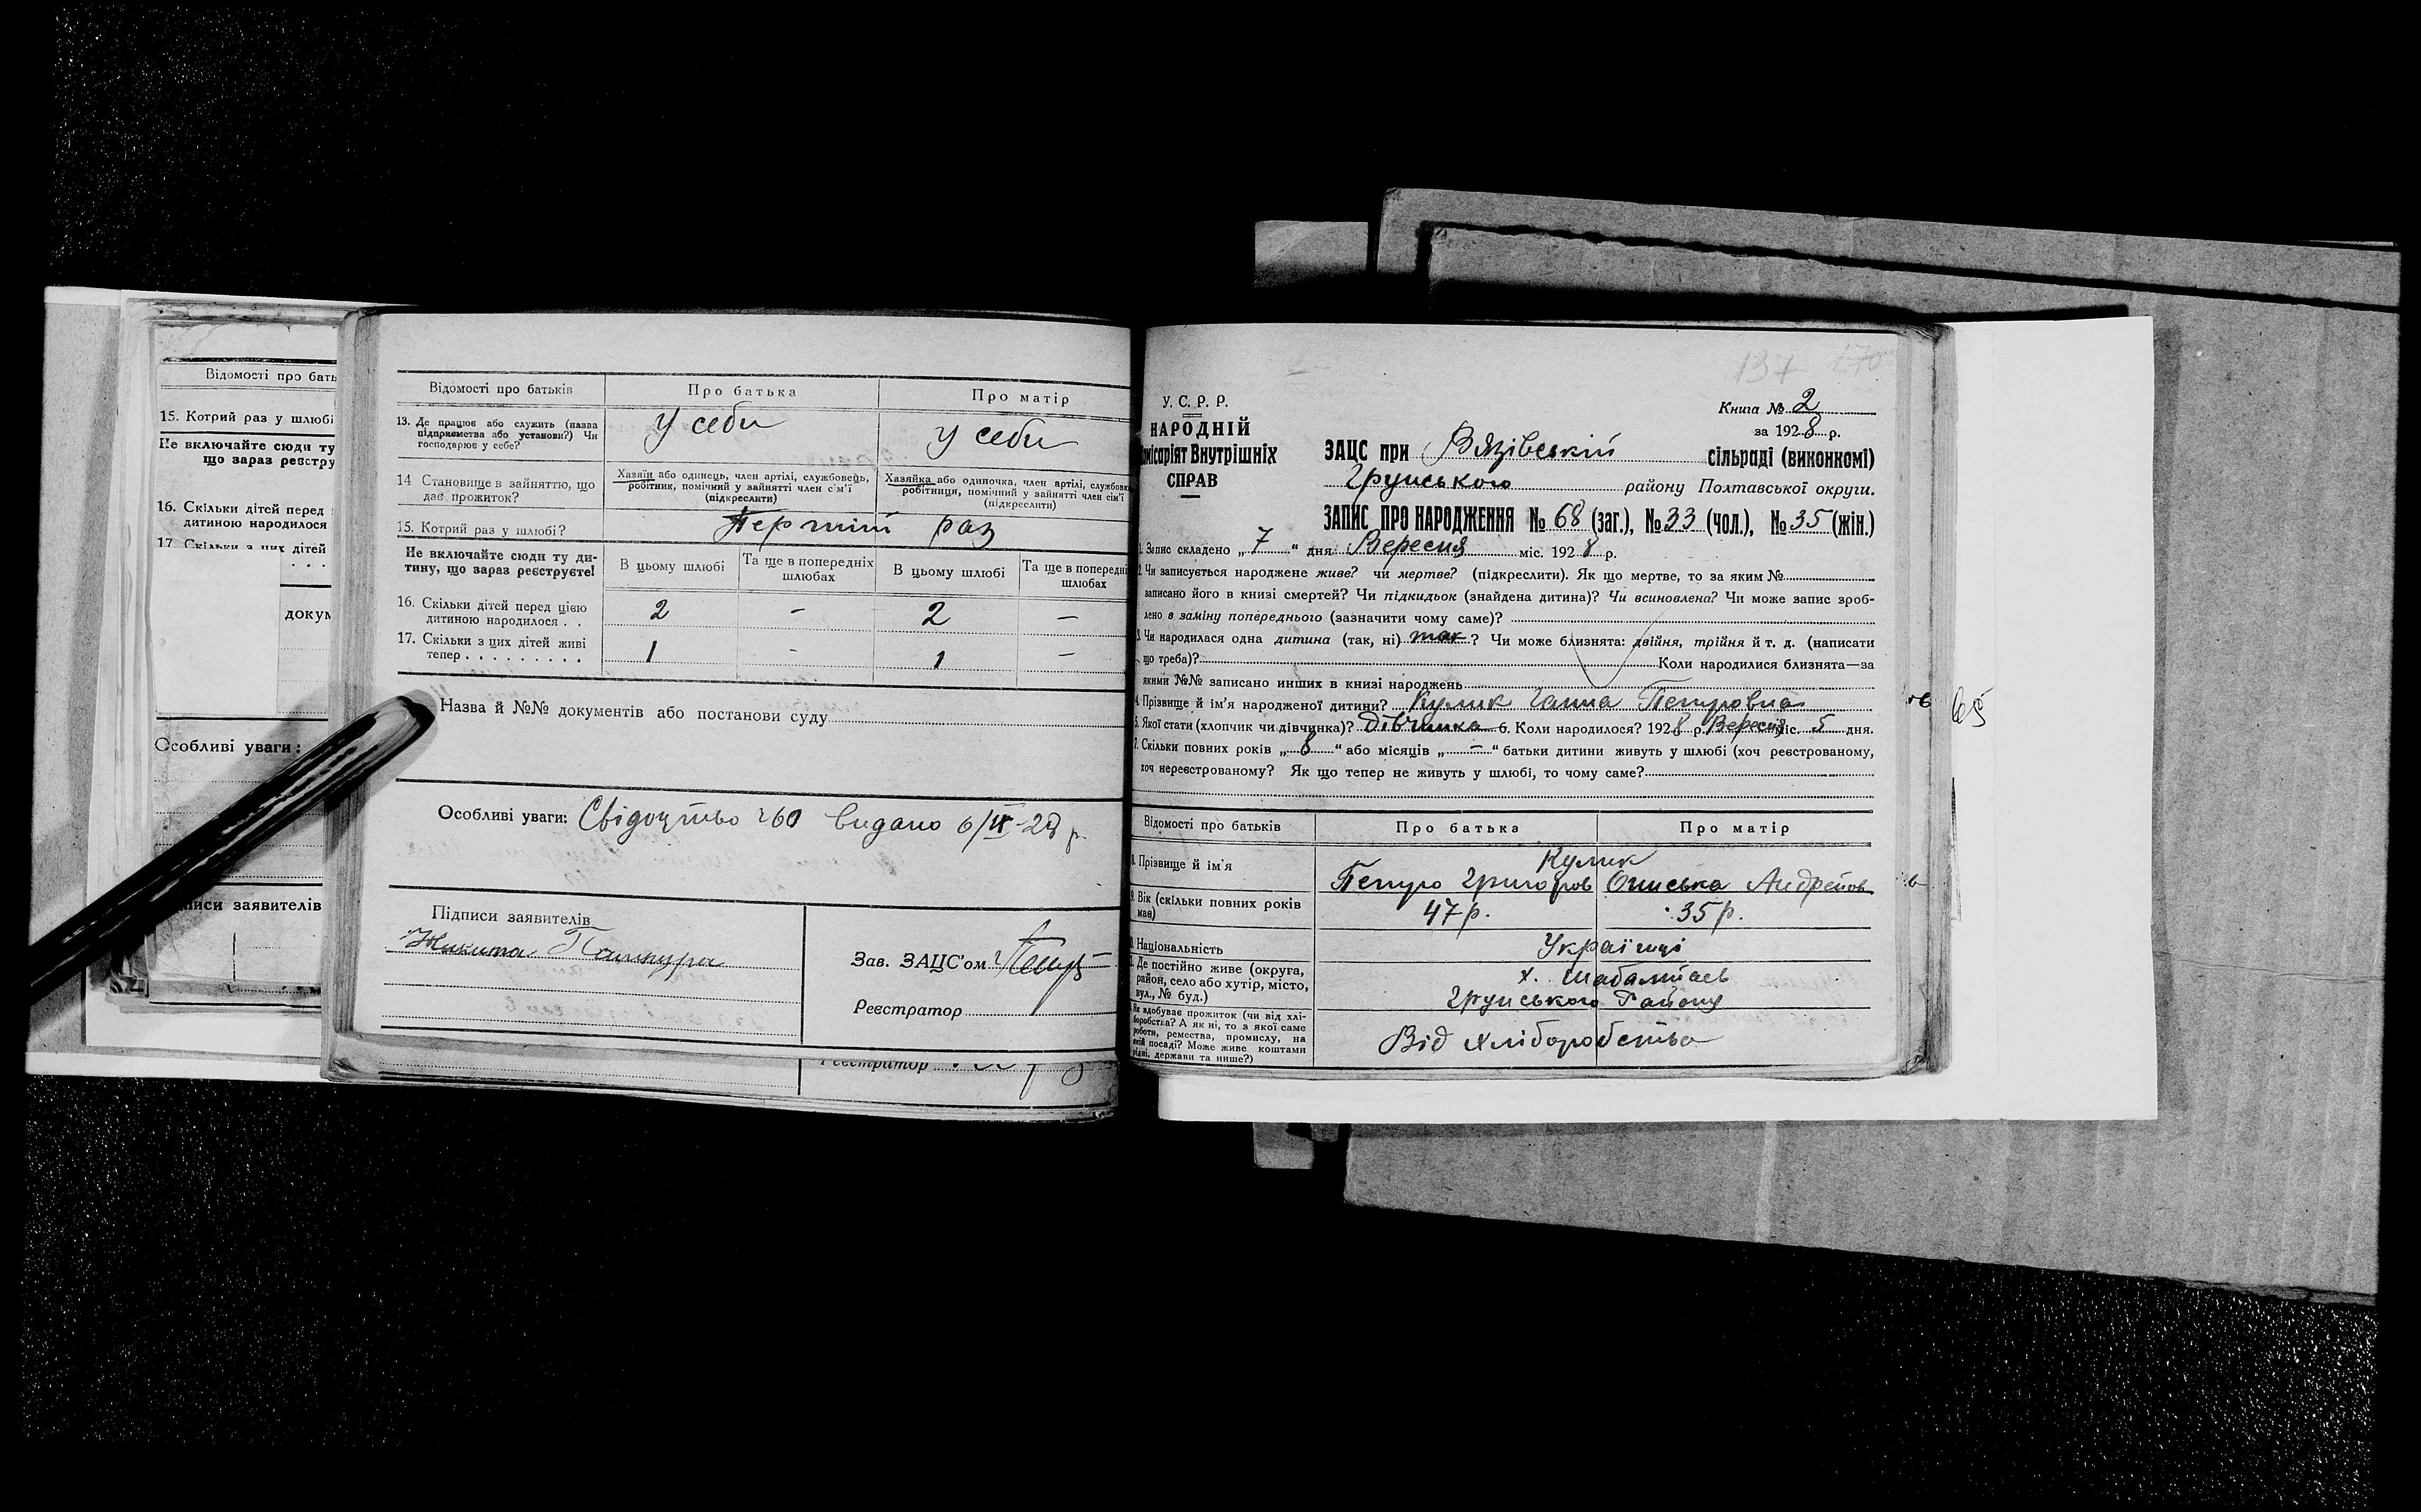 Відомості про бать
15. Котрий раз у шлюбі
Не включайте сюди ту
що зараз реєстру
16. Скільки дітей перед
дитиною народилося
17. Скільки з цих дітей
. . .
докум
Особливі уваги:
писи заявителів
Відомості про батьків
Про батька
Про матір
13. Де працює або служить (назва
підприємства або установи?) Чи
господарює у себе?
У себи
У себи
14 Становище в зайняттю, що
дає прожиток?
Хазяїн або одинець, член артілі, службовець,
робітник, помічний у зайнятті член сім'ї
(підкреслити)
Хазяйка або одиночка, член артілі, службовк
робітниця, помічний у зайнятті член сім'ї
(підкреслити)
15. Котрий раз у шлюбі?
Перший раз
Не включайте сюди ту ди-
тину, що зараз реєструєте!
В цьому шлюбі
Та ще в попередніх
шлюбах
В цьому шлюбі
Та ще в попередні
шлюбах
16. Скільки дітей перед цією
дитиною народилося . .
2 - 2 -
17. Скільки з цих дітей живі
тепер . . . . . . . . .
1 - 1 -
Назва й №№ документів або постанови суду
Особливі уваги: Свідоцтво 260 видано 6/IX-28 р.
Підписи заявителів
Зав. ЗАЦС'ом
Реєстратор
Реєстратор
137
У. С. Р. Р.
НАРОДНІЙ
омісаріят Внутрішніх
СПРАВ
Книга № 2
за 1928 р.
ЗАЦС при Вязівський сільраді (виконкомі)
Грунського району Полтавської округи.
ЗАПИС ПРО НАРОДЖЕННЯ № 68 (заг.), № 33 (чол.), № 35 (жін.)
1. Запис складено „ 7 “ дня Вересня міс. 1928 р.
2. Чи записується народжене живе? чи мертве? (підкреслити). Як що мертве, то за яким №
записано його в книзі смертей? Чи підкидьок (знайдена дитина)? Чи всиновлена? Чи може запис зроб-
лено в заміну попереднього (зазначити чому саме)?
3. Чи народилася одна дитина (так, ні) так? Чи може близнята: двійня, трійня й т. д. (написати
що треба)? Коли народилися близнята—за
якими №№ записано инших в книзі народжень
4. Прізвище й ім'я народженої дитини? Кулик Ганна Петровна
5. Якої стати (хлопчик чи дівчинка)? Дівчинка 6. Коли народилося? 1928 р. Вересня міс. 5 дня.
7. Скільки повних років „ 8 “ або місяців „ - “ батьки дитини живуть у шлюбі (хоч реєстрованому,
хоч нереєстрованому? Як що тепер не живуть у шлюбі, то чому саме?
Відомості про батьків
Про батька
Про матір
8. Прізвище й ім'я
Кулик
Петро Григоров
Ониська Андрейов
9. Вік (скільки повних років
має)
47 р.
35 р.
Національність
Українці
Де постійно живе (округа,
район, село або хутір, місто,
вул., № буд.)
Грунського Району
Як здобуває прожиток (чи від хлі-
боробства? А як ні, то з якої саме
роботи, ремества, промислу, на
якій посаді? Може живе коштами
рідні, держави та инше?)
Від хліборобства